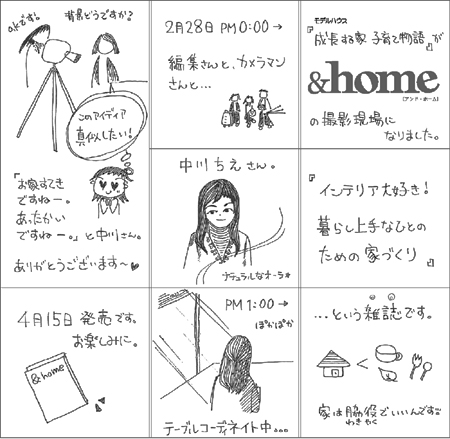 モデルハウス
『成長する家 子育て物語』が
&home
[アンド・ホーム]
の撮影現場に
なりました。
『インテリア大好き!
暮らし上手なひとの
ための家づくり』
…という雑誌です。
家は脇役でいいんです。
わきやく
2月28日 PM 0:00→
編集さんと、カメラマン
さんと…
中川ちえさん。
ナチュラルなオーラ
PM 1:00→
ぽかぽか
テーブルコーディネイト中…
背景どうですか?
okです。
このアイディア
真似したい!
「お家すてき
ですねー。
あったかい
ですねー。」と中川さん。
ありがとうございます〜♥
4月15日 発売です。
お楽しみに。
&home